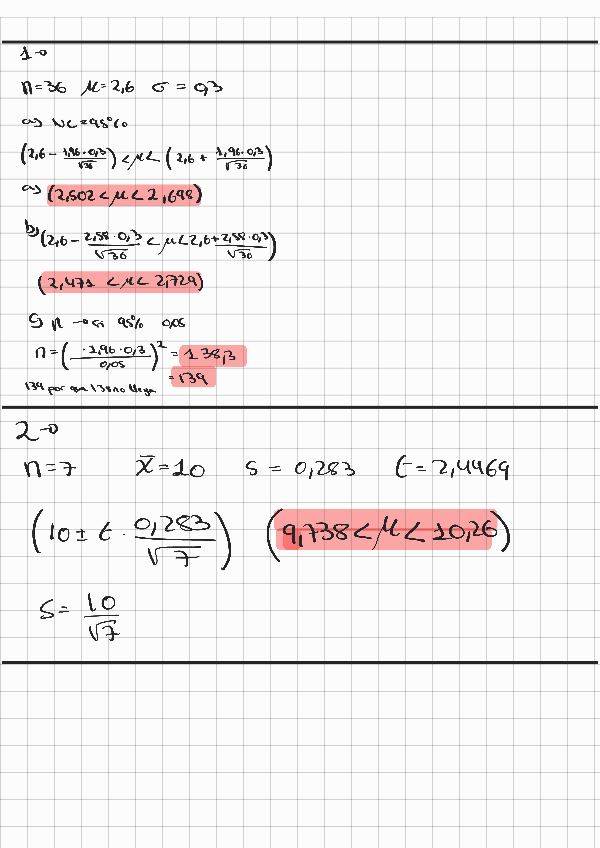 1→
n=36 μ=2,6 σ = 0,3
a) NC=95%
(2,6 - 1,96·0,3/√36) < μ < (2,6 + 1,96·0,3/√36)
a) (2,502 < μ < 2,698)
b) (2,6 - 2,58·0,3/√36 < μ < 2,6 + 2,58·0,3/√36)
(2,471 < μ < 2,729)
c) n → si 95% 0,05
n = (·1,96·0,3/0,05)² = 138,3
= 139
139 por que 138 no llega
2→
n=7 x̄=10 s = 0,283 t = 2,4469
(10 ± t · 0,283/√7) (9,738 < μ < 10,26)
s = 10/√7